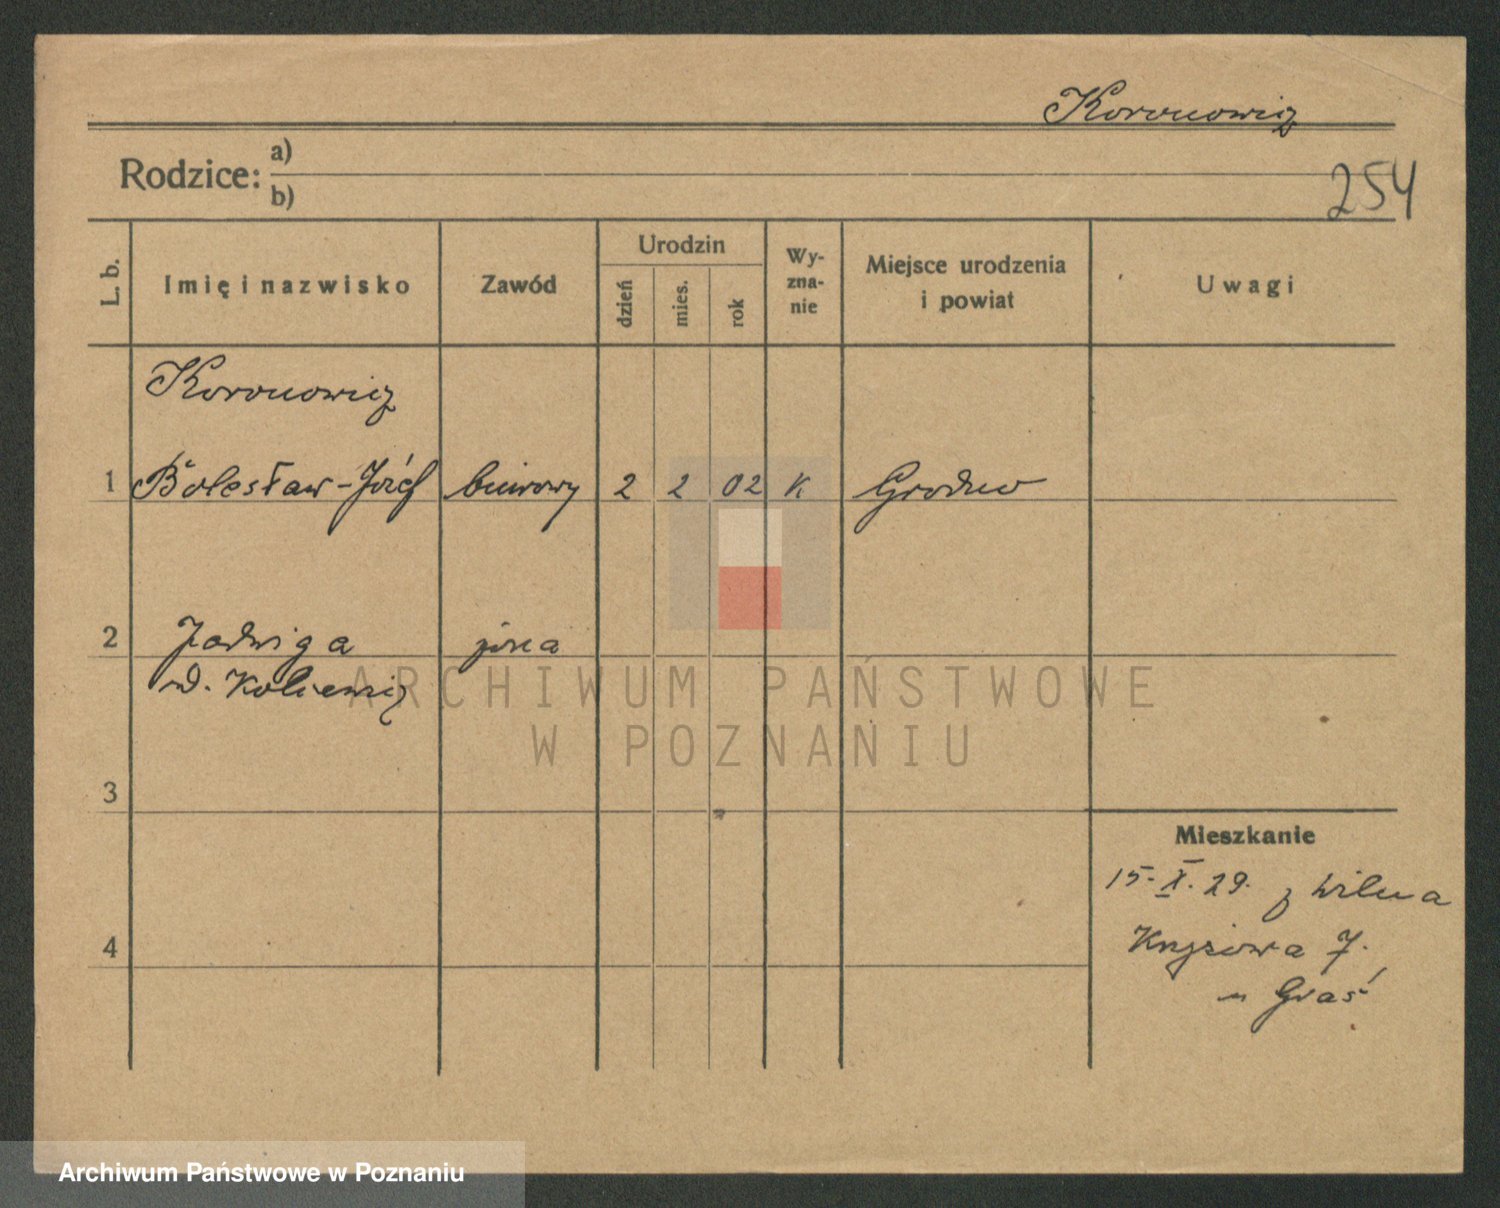 Koronowicz
Rodzice: a)
b)
254
L. b.
Imię i nazwisko
Zawód
Urodzin
dzień
mies.
rok
Wy-
zna-
nie
Miejsce urodzenia
i powiat
Uwagi
Koronowicz
1 Bolesław-Józef biurowy 2 2 02 K Grodno
2 Jadwiga żona
ARCHIWUM PAŃSTWOWE
W POZNANIU
3
Mieszkanie
15. X. 29. z Wilna
4
Archiwum Państwowe w Poznaniu